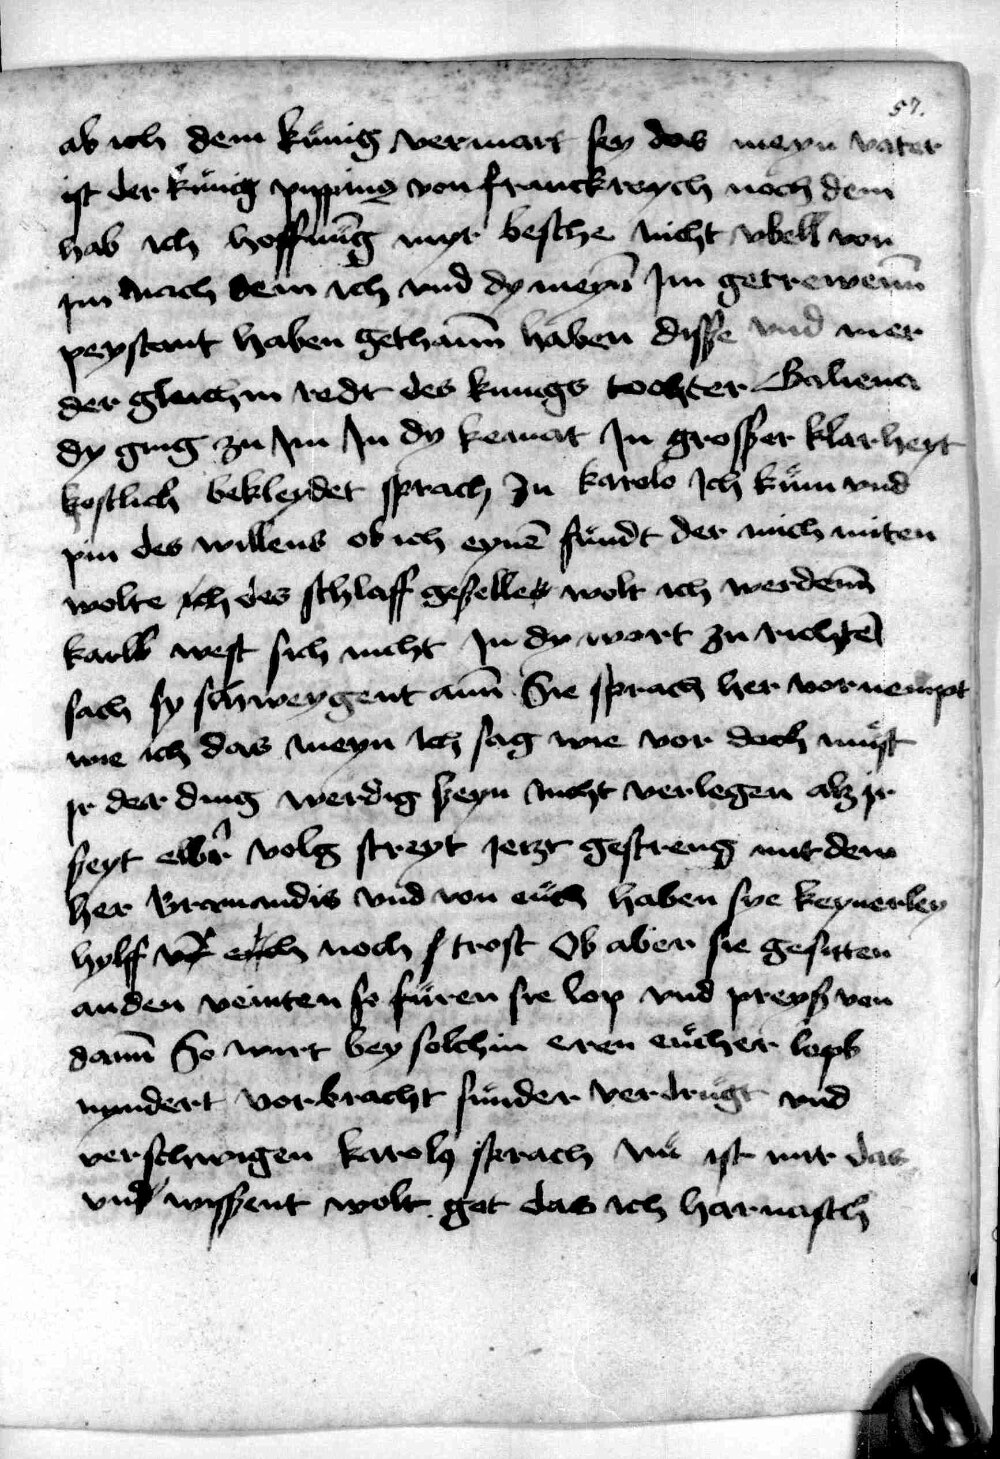 57.
ab ich dem künig vermart sey das meyn vater
ist der künig pippinus von franckreych noch dem
hab ich hoffnūg myr besche nicht vbell von
im nach dem ich vnd dy meyn̄ Im getrewenn̄
peystant haben gethann̄ haben disse vnd mer
der gleichin redt des kunigs tochter Galiena
dy ging zu Im In dy kemat In grosser klarheyt
kostlich bekleydet sprach zu karolo Ich küm vnd
pin des willens ob ich eynē fündt der mich miten
wolte ich des schlaff geselle wolt ich werdenn̄
karll west sich nicht In dy wort zu richtē
sach sy schweygent ann̄ Sie sprach her vornempt
wie ich das meyn Ich sag wie vor doch müst
ir der ding werdig seyn nicht verlegen alz ir
seyt volg streyt Jetzt gestreng mit dem
her Bramandis vnd von eüch haben sye keynerley
hylff noch trost Ob aber sie gesitten
an den veinten so füren sie lop vnd preyß von
dann̄ So wirt bey solchin eren eücher lops
nyndert vorbracht sünder verdrügt vnd
verschwigen karolus sprach Nü ist mir das
vnd wissent wolt got das ich harnasch